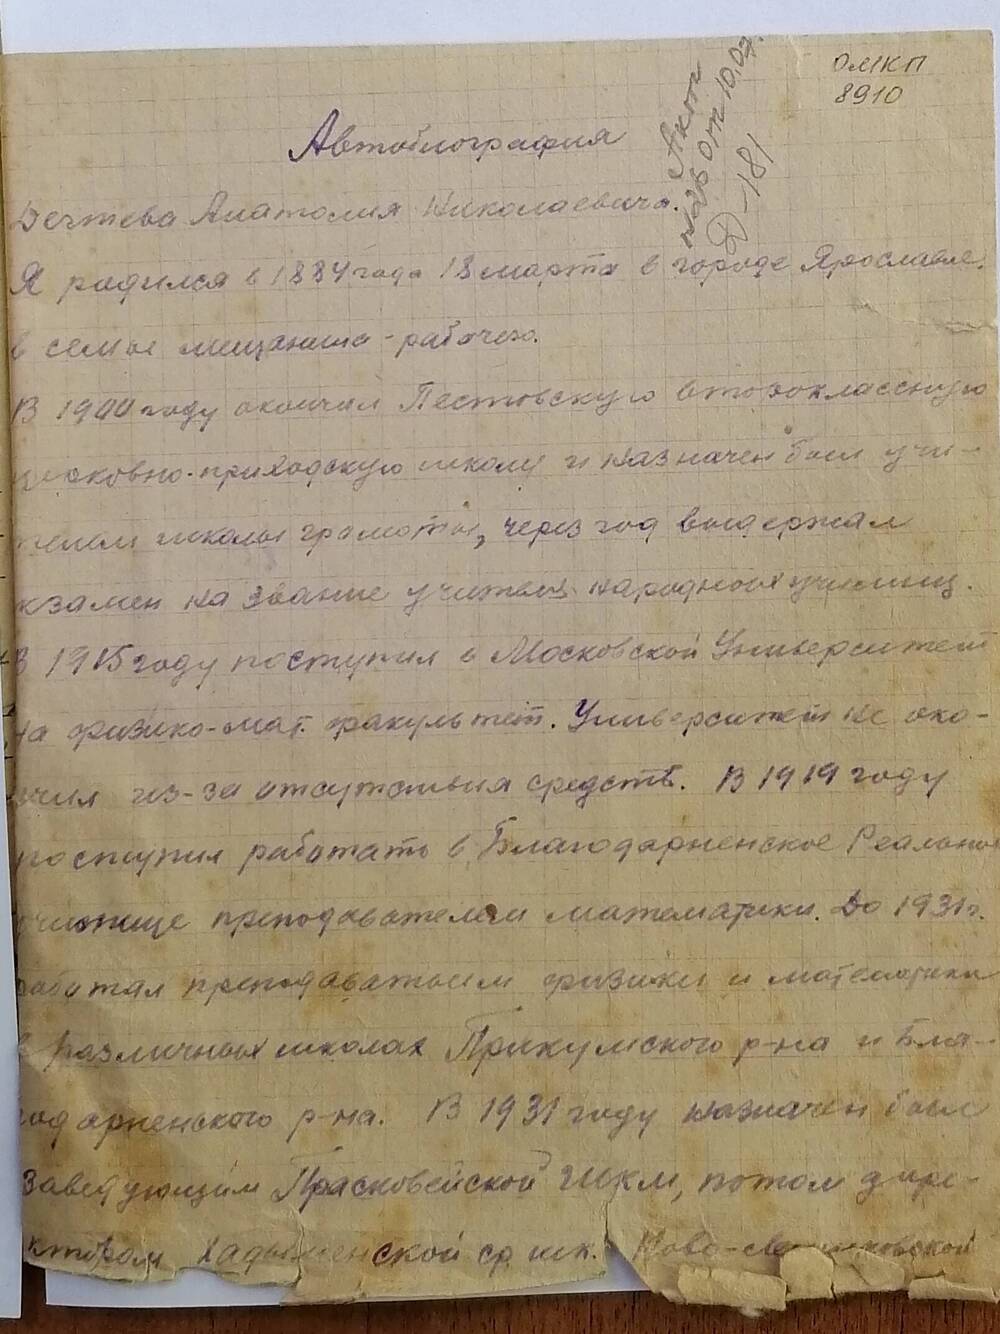 ОМКП
8910
Акт
№25 от 10.07.
Д-181
Автобиография
Анатолия Николаевича.
Я родился в 1884 года 18 марта в городе Ярославле.
в семье мещанина-рабочего.
В 1900 году окончил Пестовскую второклассную
церковно-приходскую школу и назначен был учи-
телем школы грамоты, через год выдержал
экзамен на звание учителя народных училищ.
В 1915 году поступил в Московский Университет
на физико-мат. факультет. Университет не око-
нчил из-за отсутствия средств. В 1919 году
поступил работать в Благодарненское Реальное
училище преподавателем математики. До 1931г.
работал преподавателем физики и математики
в различных школах Прикумского р-на и Бла-
годарненского р-на. В 1931 году назначен был
заведующим Прасковейской ШКМ, потом дире-
ктором ср. шк. Ново-